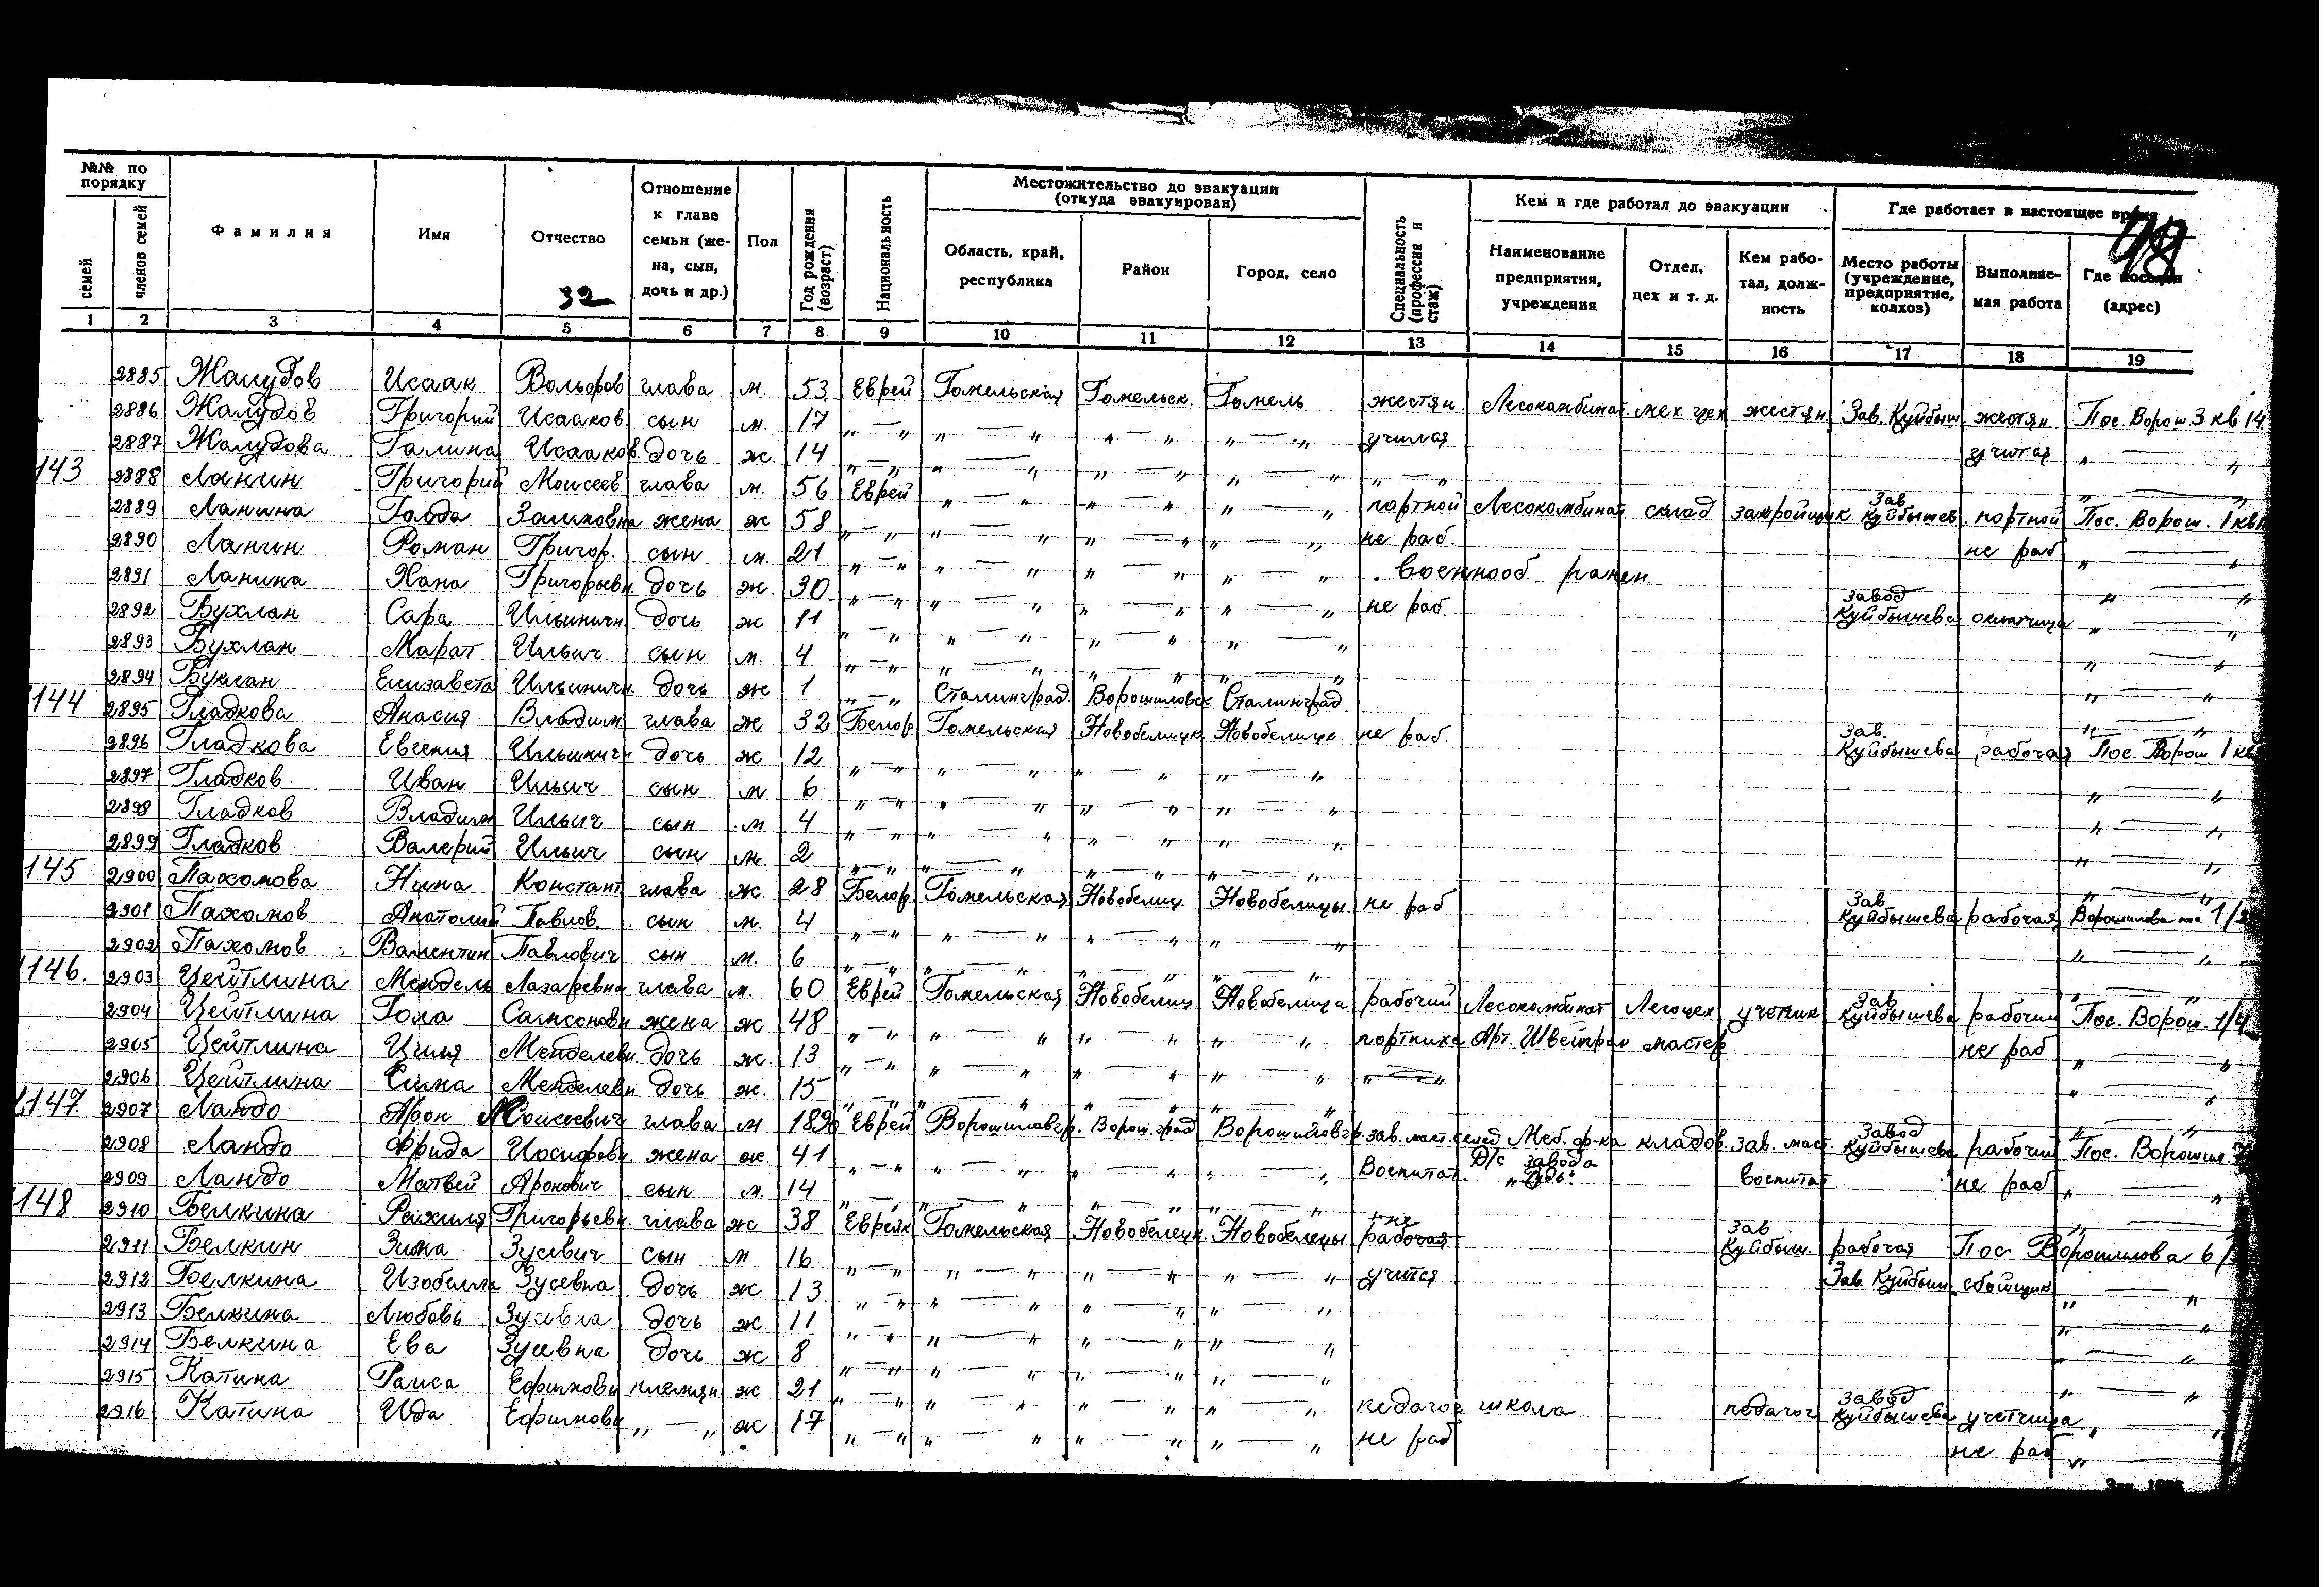 №№ по порядку
семей
членов семей
Фамилия
Имя
Отчество
32
Отношение к главе семьи (жена, сын, дочь и др.)
Пол
Год рождения (возраст)
Национальность
Местожительство до эвакуации (откуда эвакуирован)
Область, край, республика
Район
Город, село
Специальность (профессия и стаж)
Кем и где работал до эвакуации
Наименование предприятия, учреждения
Отдел, цех и т. д.
Кем работал, должность
Где работает в настоящее время
Место работы (учреждение, предприятие, колхоз)
Выполняемая работа
Где поселен (адрес)
1 2 3 4 5 6 7 8 9 10 11 12 13 14 15 16 17 18 19
2885 Жалудов Исаак Вольфов глава м. 53 Еврей Гомельская Гомельск. Гомель жестян. Лесокомбинат мех цех жестян. Зав. Куйбыш жестян Пос. Ворош. 3 кв 14
2886 Жалудов Григорий Исааков сын м. 17 „ — „ „ — „ „ — „ „ — „ учится учится „ — „
2887 Жалудова Галина Исааков. дочь ж. 14 „ — „ „ — „ „ — „ „ — „ „ — „ „ — „
143 2888 Ланин Григорий Моисеев глава м. 56 Еврей „ — „ „ — „ „ — „ портной Лесокомбинат склад закройщик Зав Куйбышев. портной Пос. Ворош. 1 кв
2889 Ланина Голда Залковна жена ж 58 „ — „ „ — „ „ — „ „ — „ не раб. не раб „ — „
2890 Ланин Роман Григор. сын м. 21 „ — „ „ — „ „ — „ „ — „ Военнооб. ранен „ — „
2891 Ланина Хана Григорьевн. дочь ж. 30 „ — „ „ — „ „ — „ „ — „ не раб. завод Куйбышева „ — „
2892 Бухман Сара Ильиничн дочь ж 11 „ — „ „ — „ „ — „ „ — „ „ — „
2893 Бухман Марат Ильич сын м. 4 „ — „ „ — „ „ — „ „ — „ „ — „
2894 Бухман Елизавета Ильиничн. дочь ж 1 „ — „ Сталинград. Ворошиловск Сталинград. „ — „
144 2895 Гладкова Владим глава ж 32 Белор Гомельская Новобелицк Новобелицк не раб. Зав. Куйбышева рабочая Пос. Ворош 1 кв
2896 Гладкова Евгения Ильиничн дочь ж 12 „ — „ „ — „ „ — „ „ — „ „ — „
2897 Гладков Иван Ильич сын м 6 „ — „ „ — „ „ — „ „ — „ „ — „
2898 Гладков Владим Ильич сын м 4 „ — „ „ — „ „ — „ „ — „ „ — „
2899 Гладков Валерий Ильич сын м. 2 „ — „ „ — „ „ — „ „ — „ „ — „
145 2900 Пахомова Нина Констант глава ж. 28 Белор. Гомельская Новобелиц. Новобелицы не раб Зав Куйбышева рабочая Ворошилова пос. 1/2
2901 Пахомов Анатолий Павлов. сын м. 4 „ — „ „ — „ „ — „ „ — „ „ — „
2902 Пахомов Валентин Павлович сын м. 6 „ — „ „ — „ „ — „ „ — „ „ — „
146. 2903 Цейтлина Мендель Лазаревна глава м. 60 Еврей Гомельская Новобелиц Новобелица рабочий Лесокомбинат Лесоцех учетник Зав Куйбышева рабочий Пос. Ворош. 1/4
2904 Цейтлина Гола Самсоновн жена ж 48 „ — „ „ — „ „ — „ „ — „ портниха Арт. Швейпром мастер не раб „ — „
2905 Цейтлина Циля Менделевн. дочь ж. 13 „ — „ „ — „ „ — „ „ — „ „ — „ „ — „
2906 Цейтлина Менделевн дочь ж. 15 „ — „ „ — „ „ — „ „ — „ „ — „
147 2907 Ландо Арон Моисеевич глава м 1890 Еврей Ворошиловгр. Ворош. град Ворошиловгр. зав. маст. Меб. ф-ка кладов. зав. маст. Завод Куйбышева рабочий Пос. Ворошил.
2908 Ландо Фрида Иосифовн. жена ж. 41 „ — „ „ — „ „ — „ „ — „ Воспитат. Д/с завода воспитат не раб „ — „
2909 Ландо Матвей Аронович сын м. 14 „ — „ „ — „ „ — „ „ — „ „ — „
148 2910 Белкина Рахиля Григорьевн. глава ж 38 Еврейк Гомельская Новобелецк. Новобелецы не рабочая Зав Куйбыш. рабочая Пос Ворошилова 6/
2911 Белкин Зяма Зусевич сын м 16 „ — „ „ — „ „ — „ „ — „ учится Зав. Куйбыш сбойщик „ — „
2912 Белкина Изобелла Зусевна дочь ж 13 „ — „ „ — „ „ — „ „ — „ „ — „
2913 Белкина Любовь Зусевна дочь ж. 11 „ — „ „ — „ „ — „ „ — „ „ — „
2914 Белкина Ева Зусевна дочь ж 8 „ — „ „ — „ „ — „ „ — „ „ — „
2915 Катина Раиса Ефимовн племян ж 21 „ — „ „ — „ „ — „ „ — „ педагог школа педагог Завод Куйбышева учетчица „ — „
2916 Катина Ида Ефимовн „ — „ ж 17 „ — „ „ — „ „ — „ „ — „ не раб не раб „